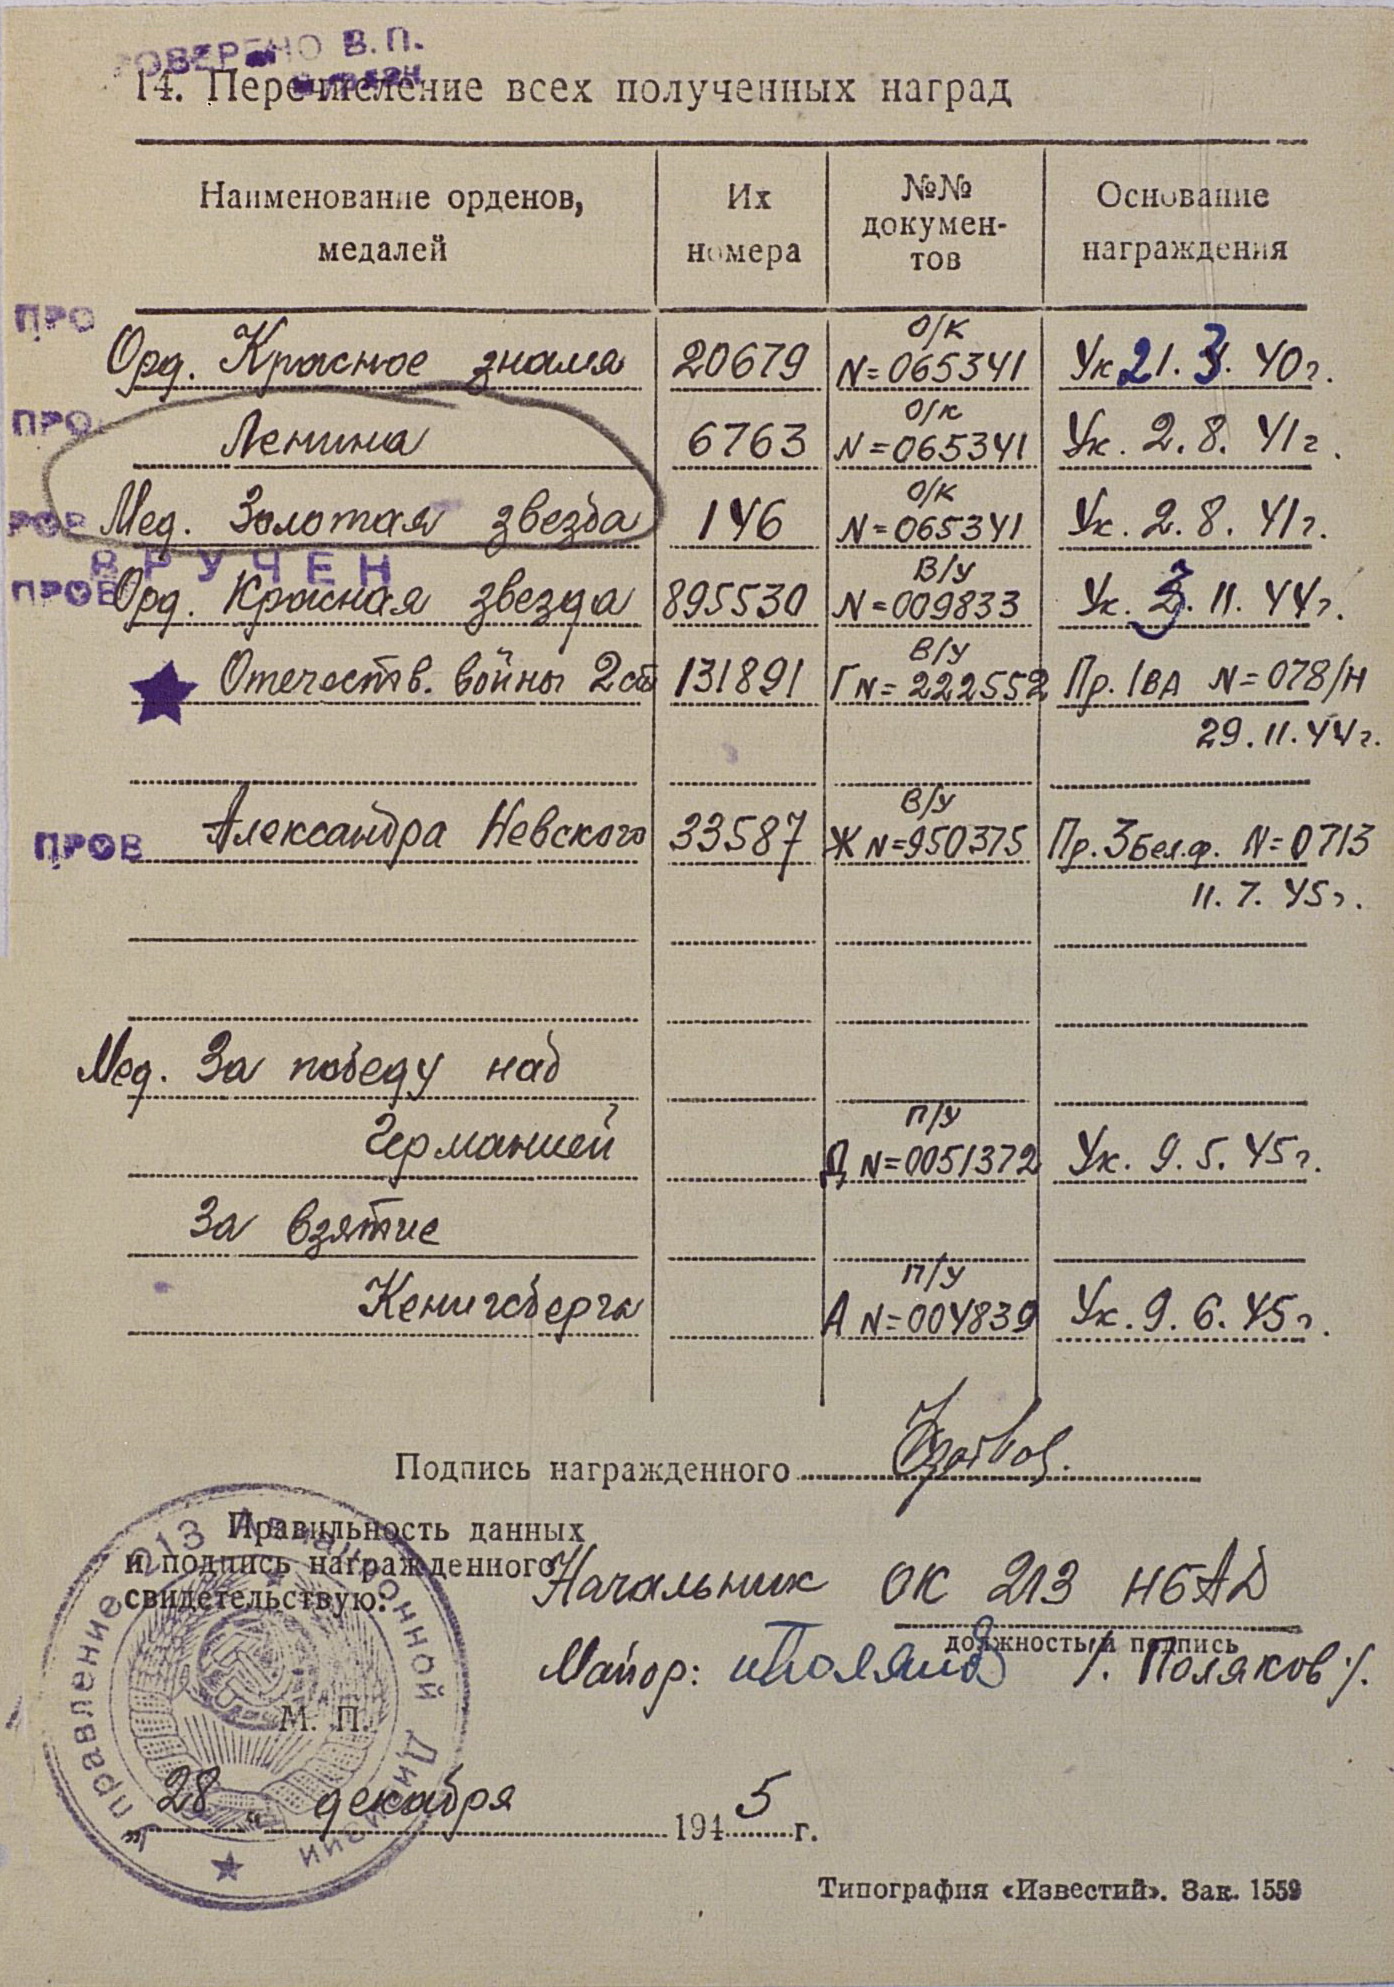 ПРОВЕРЕНО В.П.
14. Перечисление всех полученных наград
Наименование орденов, медалей
Их номера
№№ докумен-тов
Основание награждения
ПРО
О/К
Орд. Красное знамя 20679 N=065341 Ук 21.3.40г.
ПРО
О/К
Ленина 6763 N=065341 Ук. 2.8.41г.
О/К
РОВ Мед. Золотая звезда 146 N=065341 Ук. 2.8.41г.
ВРУЧЕН
В/У
ПРОВ Орд. Красная звезда 895530 N=009833 Ук. 3.11.44г.
В/У
Отечеств. войны 2 ст 131891 Г N=222552 Пр. 1ВА N=078/Н
29.11.44г.
В/У
ПРОВ Александра Невского 33587 Ж N=950375 Пр. 3 Бел.ф. N=0713
11.7.45г.
Мед. За победу над
П/У
Германией Д N=0051372 Ук. 9.5.45г.
За взятие
П/У
Кенигсберга А N=004839 Ук. 9.6.45г.
Подпись награжденного
Правильность данных
и подпись награжденного
свидетельствую:
Начальник ОК 213 НБАД
должность и подпись
Майор: Поляков /. Поляков /.
М. П.
„ 28 “ декабря 1945 г.
Управление 213 Авиационной Дивизии
Типография «Известий». Зак. 1559